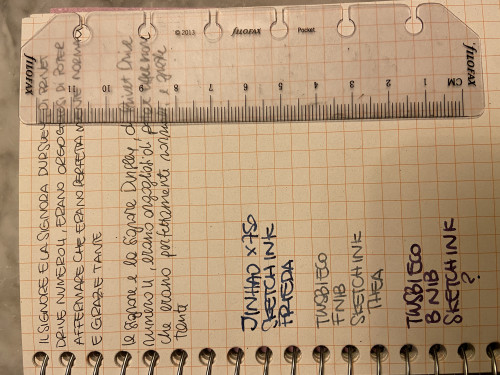 IL SIGNORE E LA SIGNORA DURSLEY DI PRIVET
DRIVE NUMERO 4, ERANO ORGOGLIOSI DI POTER
AFFERMARE CHE ERANO PERFETTAMENTE NORMALI
E GRAZIE TANTE
la signora Dursley, di Privet Drive
numero 4, erano orgogliosi di poter affermare
che erano perfettamente normali e grazie
tante
JINHAO X750
SKETCH INK
FRIEDA
TWSBI ECO
F NIB
SKETCH INK
THEA
TWSBI ECO
B NIB
SKETCH INK
?
filofax
© 2013
filofax
Pocket
filofax
11 10 9 8 7 6 5 4 3 2 1 CM